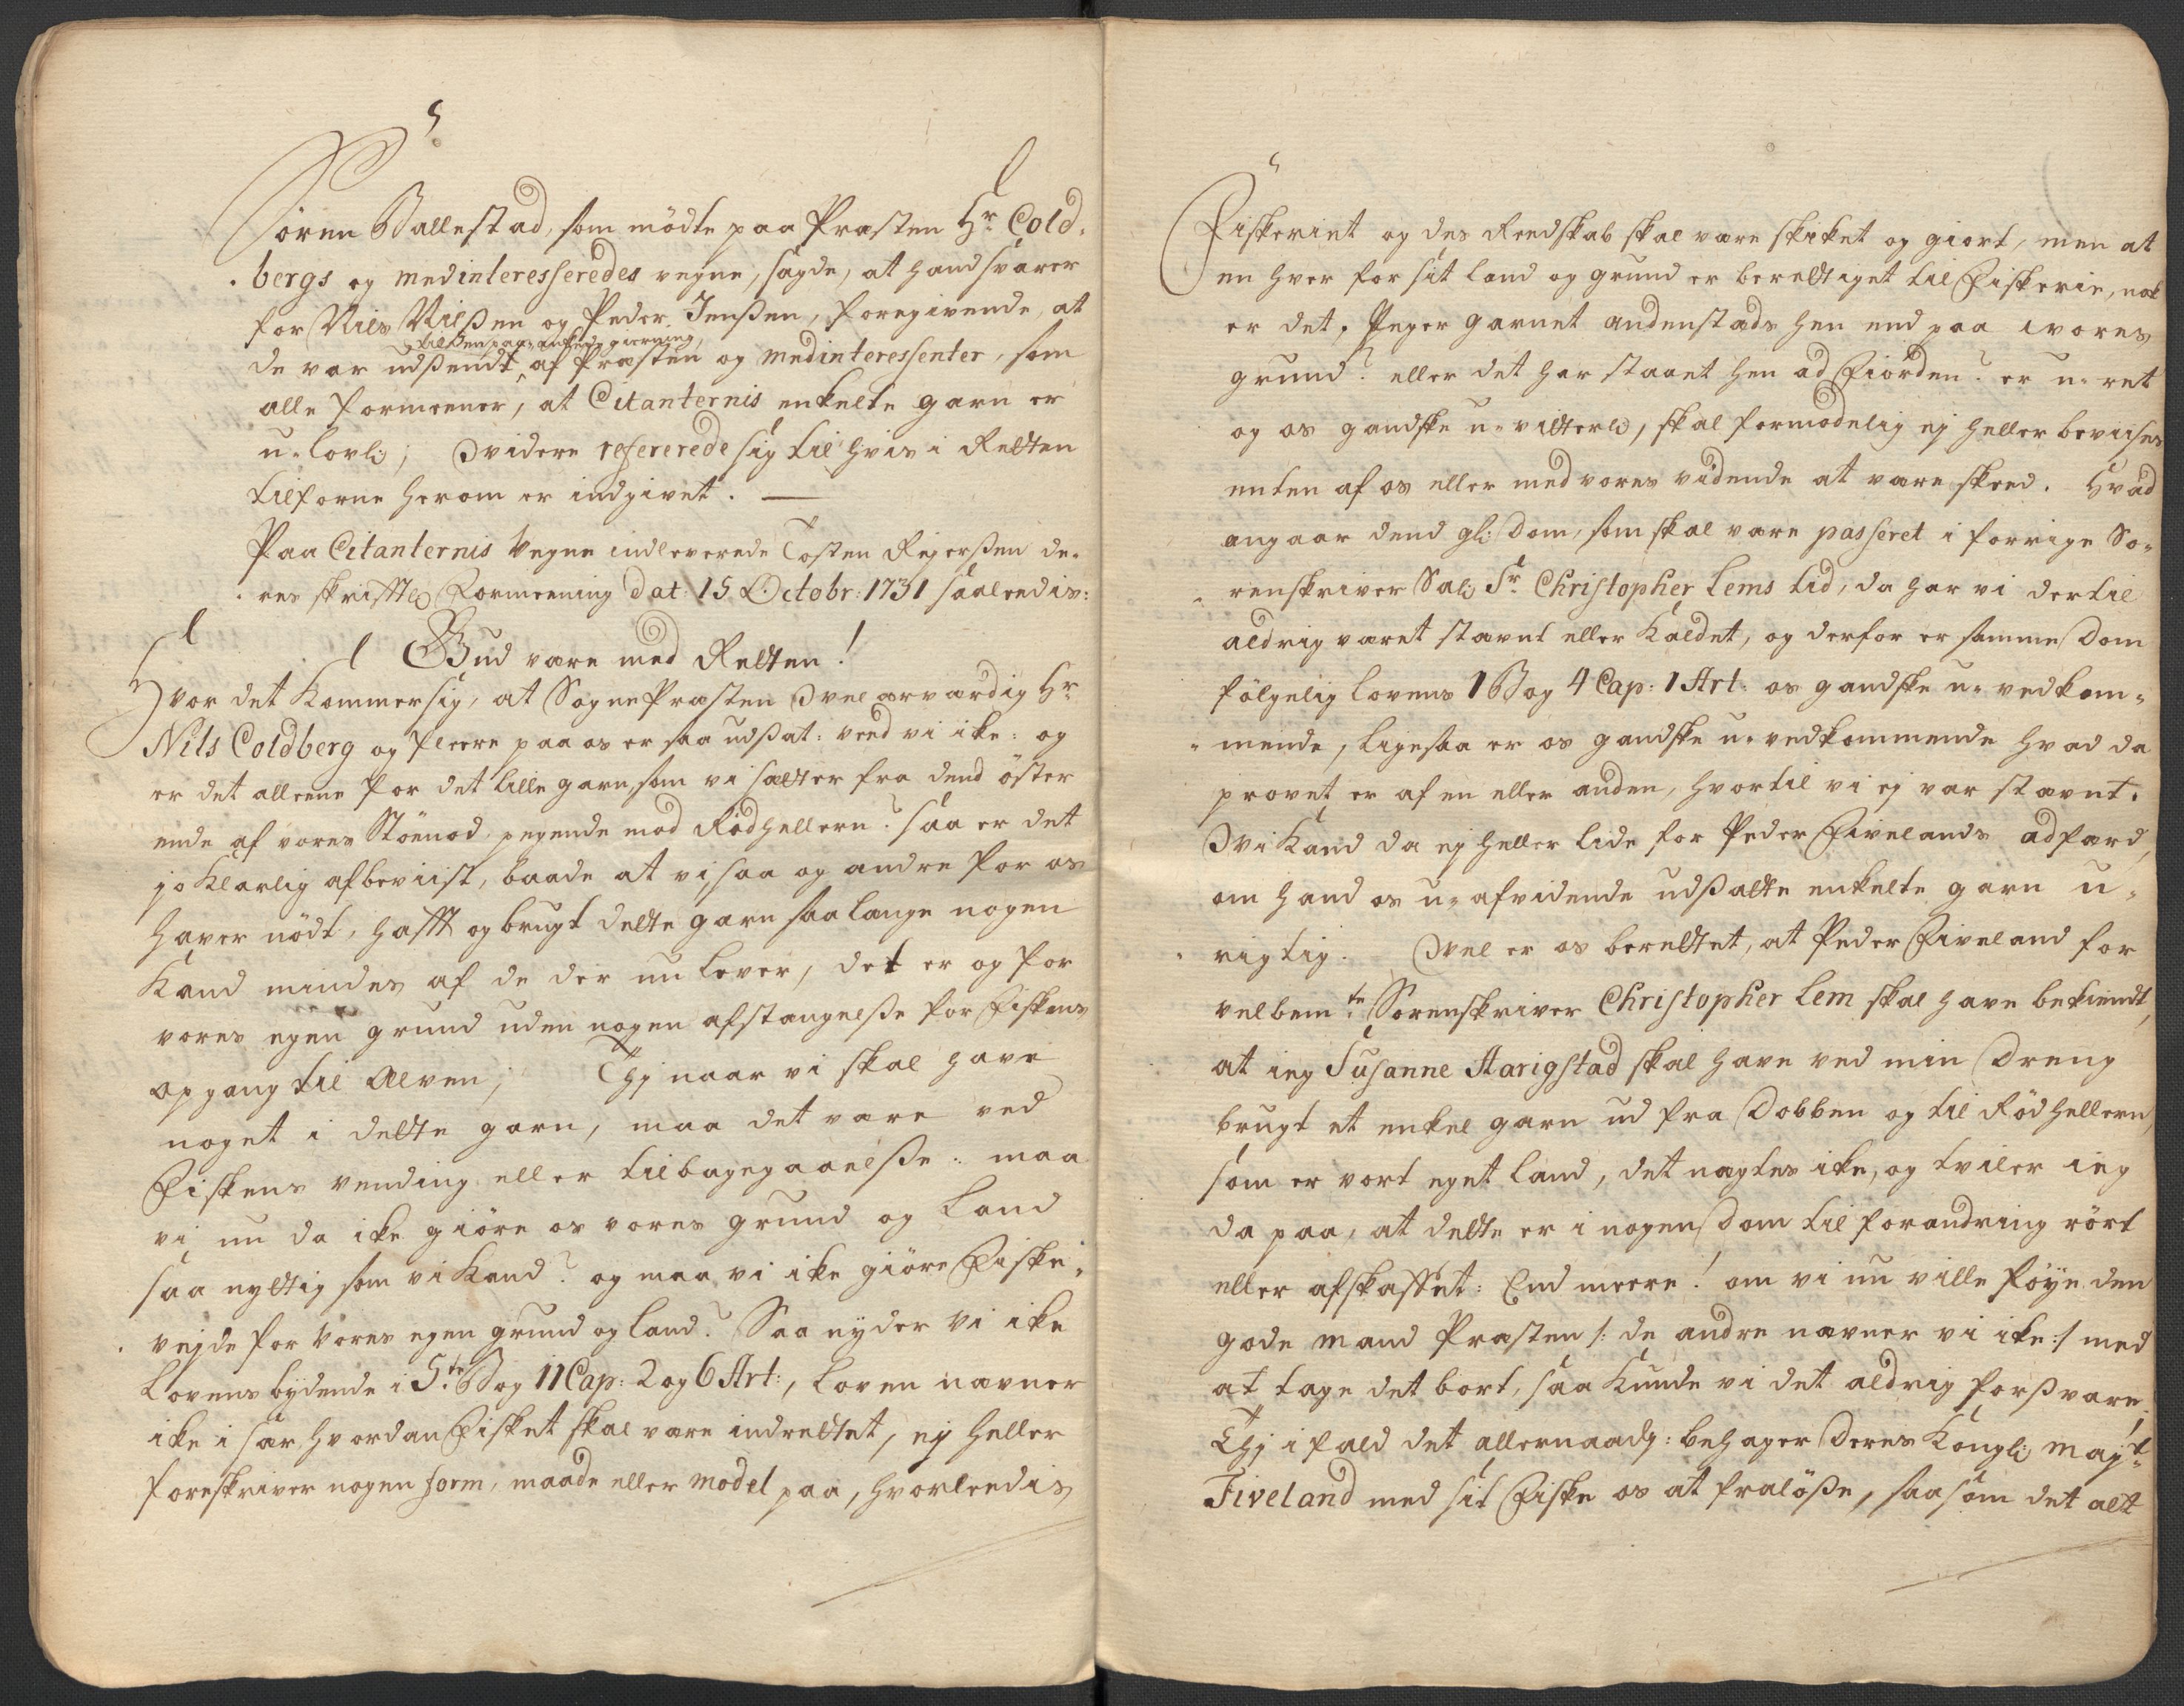 Sören Ballestad, som mödte paa Præsten Hr. Cold-
bergs og medinteresseredes vegne, sagde, at hand svarer
for Niels Nielßen og Peder Jenßen, foregivende, at
til den paa-ankede gierning,
de var udßendt af Præsten og medinteressenter, som
alle formeener, at Citanternis enkelte garn er
u-lovl:; Videre refererede sig til hvis i Retten
tilforne herom er indgivet. —
Paa Citanternis Vegne indleverede Tosten Rejerßen de-
res skrifftl: Formeening dat: 15 Octobr: 1731 saaledis:
Gud være med Retten!
Hvor det kommer sig, at SognePræsten Velærværdig Hr.
Nils Coldberg og fleere paa os er saa udßat: veed vi ike: og
er det alleene for det lille garn, som vi sætter fra dend öster
ende af vores Stöenod pegende mod Rödhellern? saa er det
jo klarlig afbeviist, baade at vi, saa og andre for os
haver nödt, hafft og brugt dette garn saa lange nogen
kand mindes af de der nu lever, det er og for
vores egen grund uden nogen afstængelße for Fiskens
opgang til Elven; Thj naar vi skal have
noget i dette garn, maa det være ved
Fiskens vending eller tilbagegaaelße: maa
vi nu da ike giöre os vores grund og Land
saa nyttig som vi kand? og maa vi ike giöre Fiske-
vejde for vores egen grund og land? Saa nyder vi ike
Lovens bydende i 5te Bog 11 Cap: 2 og 6 Art:, Loven nævner
ike i sær, hvordan Fisket skal være indrettet, ej heller
foreskriver nogen form, maade eller model paa, hvorleedis
Fiskeriet og des Reedskab skal være skiket og giort, men at
en hver for sit land og grund er berettiget til Fiskerie, nok
er det, Peger garnet andenstads hen end paa vores
grund? eller det har staaet hen ad Fiorden? er u-ret
og os gandske u-vitterl:, skal formodelig ej heller bevises
enten af os eller med vores vidende at være skeed. Hvad
angaar dend gl: Dom, som skal være passeret i forrige So-
renskriver Sal: Sr. Christopher Lems tid, da har vi dertil
aldrig været stævnt eller kaldet, og derfor er samme Dom
fölgelig Lovens 1 Bog 4 Cap: 1 Art: os gandske u-vedkom-
mende, ligesaa er os gandske u-vedkommende hvad da
provet er af en eller anden, hvortil vi ej var stævnt.
Vi kand da ej heller lide for Peder Fivelands adfærd,
om hand os u-afvidende udßatte enkelte garn u-
rigtig. Vel er os berettet, at Peder Fiveland for
velbemte. Sorenskriver Christopher Lem skal have bekiendt,
at ieg Susanne Aarigstad skal have ved min Dreng
brugt et enkel garn ud fra Dobben og til Rödhellern,
som er vort eget land, det nægtes ike, og tviler ieg
da paa, at dette er i nogen Dom til forandring rört
eller afskaffet: End meere! om vi nu ville föye den
gode Mand Præsten /: de andre nævner vi ike :/ med
at tage det bort, saa kunde vi det aldrig forßvare,
Thj i fald det allernaadg: behager Deres Kongl: Mayt.
Fiveland med sit Fiske os at fralöße, saasom det alt